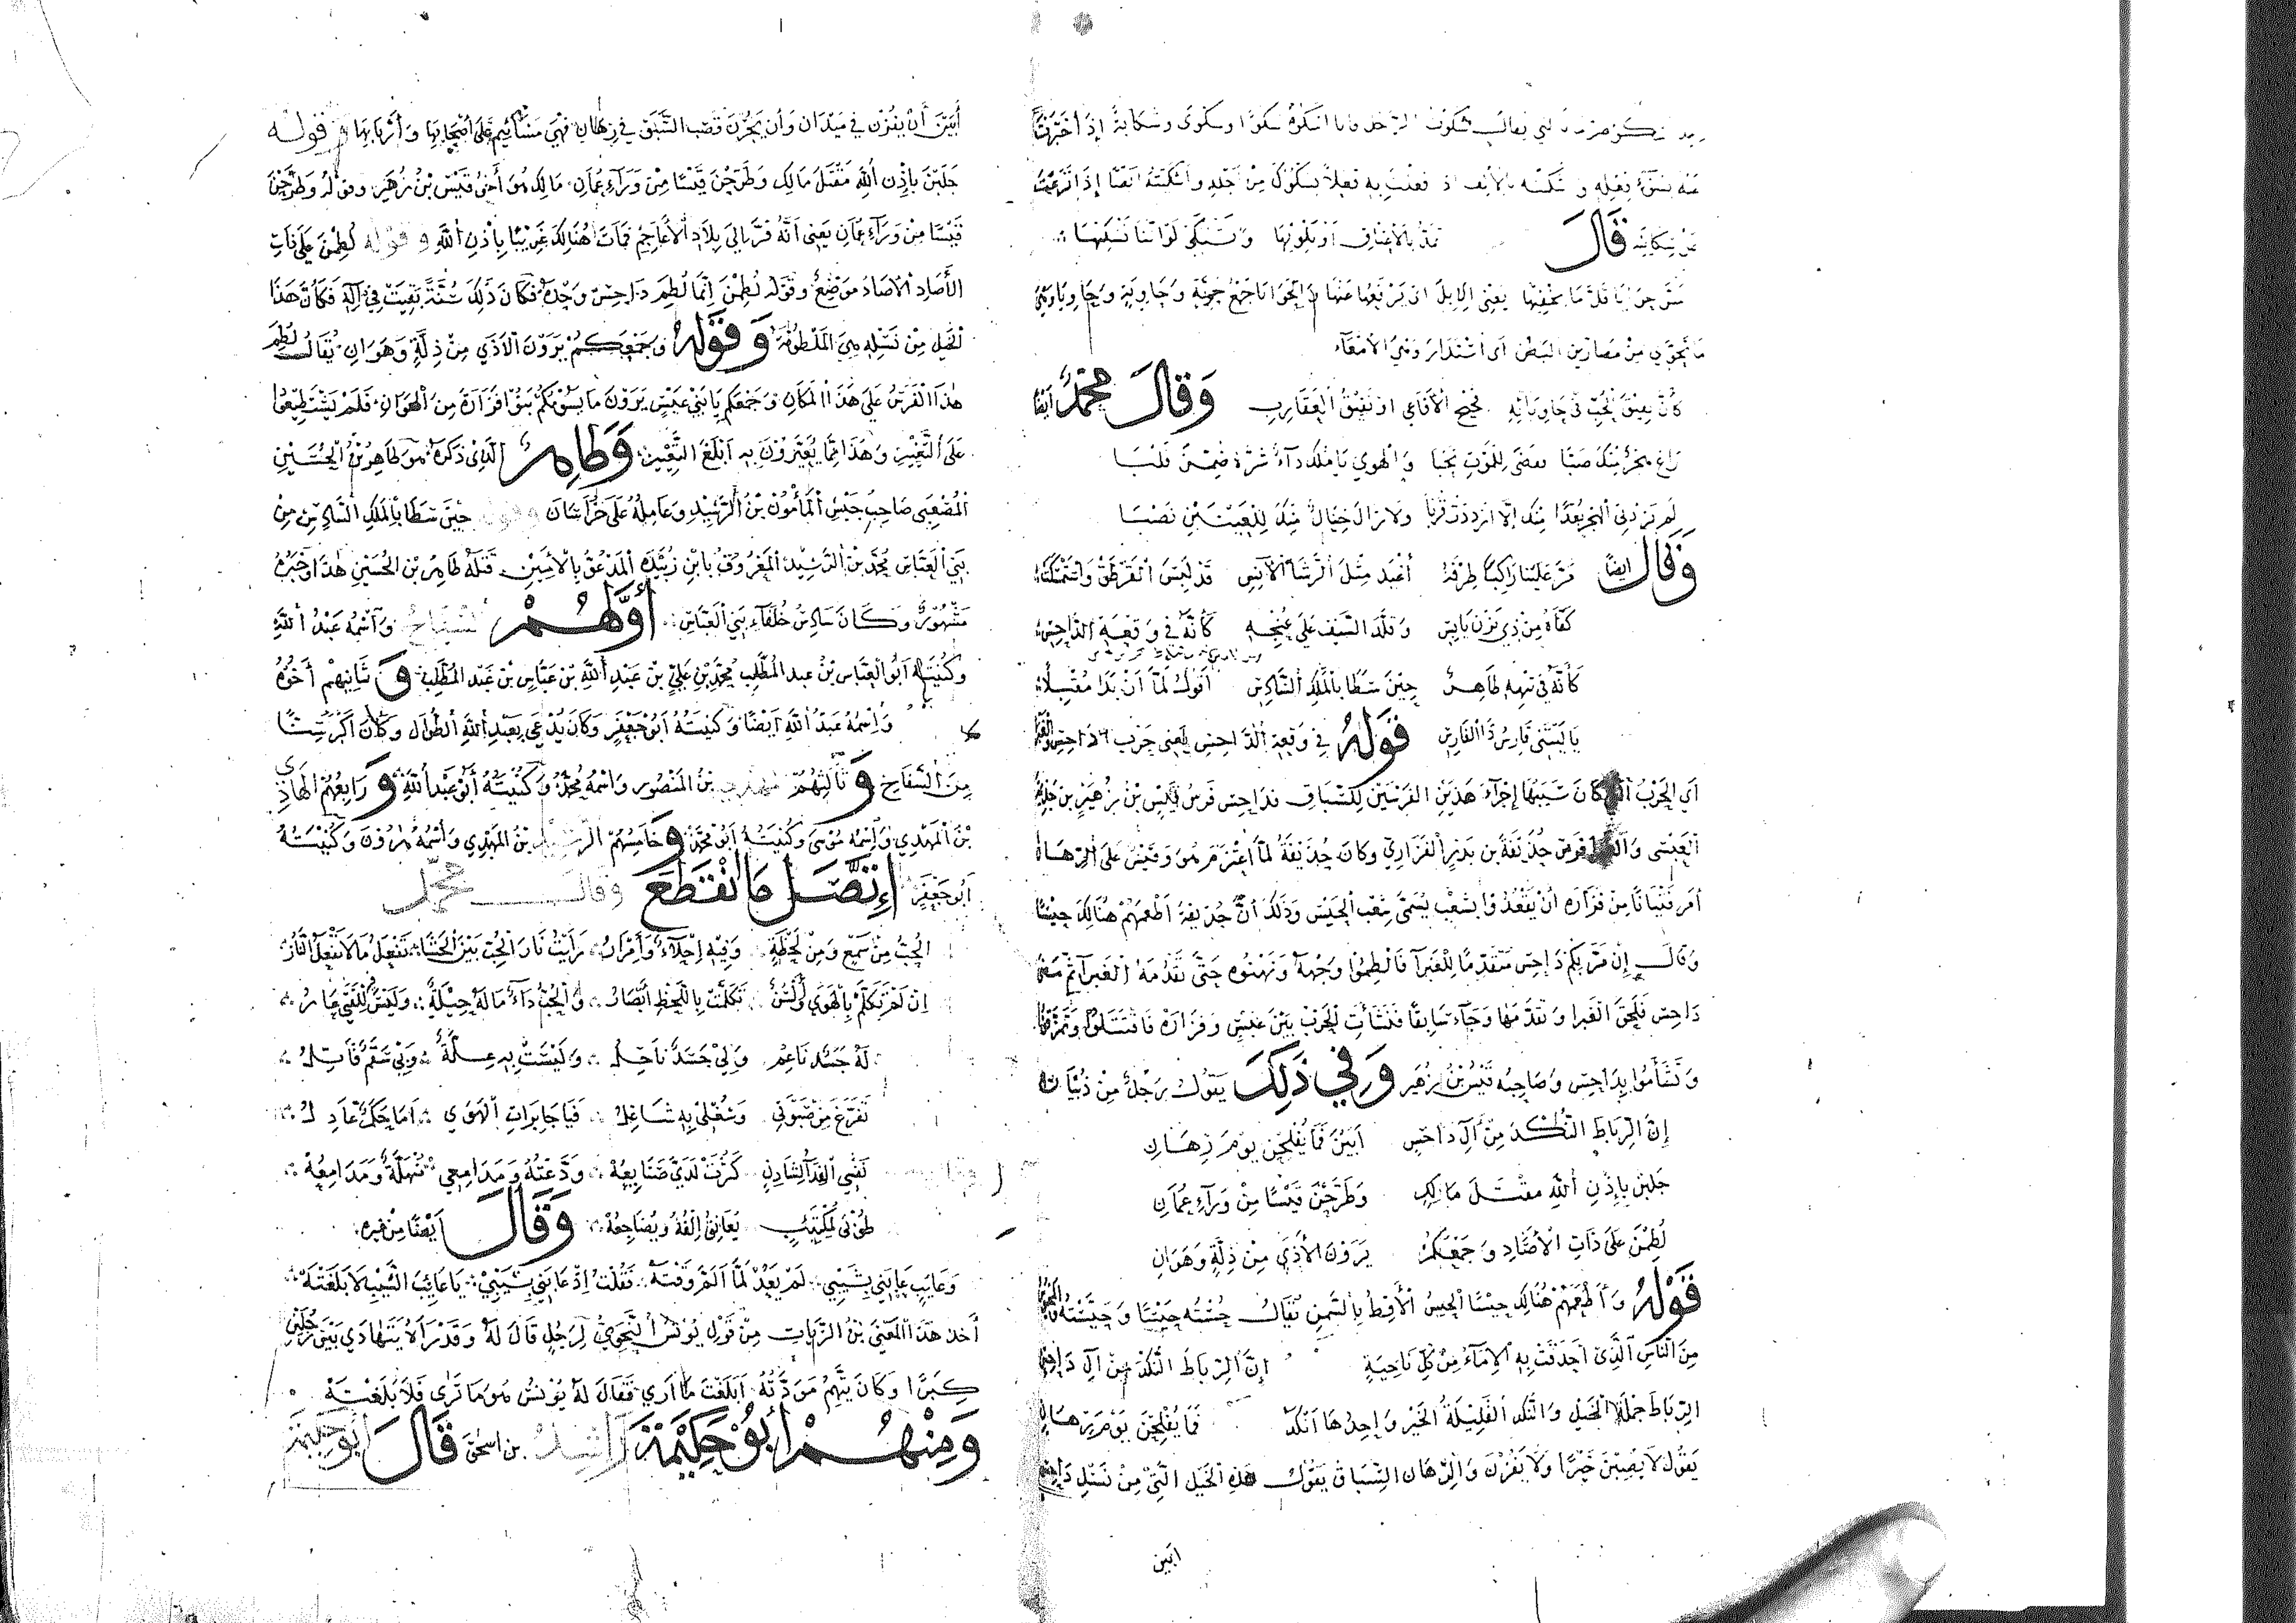 شكوت الرجل فانا اشكوه شكوا وشكوى وشكاية إذا أخبرت
عنه بسوء فعله
عن شكايته قال تمد بالأعناق او تلويها وتشتكي لو اننا نشكيها
يعنى الابل
ما تحوي من مصارين البطن اى استدار وهي الامعاء
كأن نقيق الحب في حاويائه فحيح الأفاعي او نقيق العقارب وقال محمد ايضا
لم يزدني الهجر بعدا منك إلا ازددت قربا ولا زال خيال منك للعينين نصبا
وقال ايضا مر علينا راكبا طرفه أغيد مثل الرشأ الآنس قد لبس القرطق
وقلد السيف على غنجه كأنه في وقعة الداحس
كأنه في تيهه طاهر حين سطا بالملك السادس أقول لما أن بدا مقبلا
يا ليتنى فارس ذا الفارس قوله في وقعة الداحس يعنى حرب داحس
أي الحرب التي كان سببها إجراء هذين الفرسين للسباق فداحس فرس لقيس بن زهير بن جذيمة
العبسى فرس حذيفة بن بدر الفزاري وكان حذيفة لما اعتزم هو وقيس على الرهان
أمر فتيانا من فزارة أن يقعدوا بشعب يسمى شعب الحيس وذلك أن حذيفة أطعمهم هنالك حيسا
وقال إن مر بكم داحس متقدما للغبرا فالطموا وجهه ونهنهوه حتى تقدمه الغبرا
داحس فلحق الغبرا وتقدمها وجاء سابقا فنشأت الحرب بين عبس وفزارة فاقتتلوا
وتشأموا بداحس وصاحبه قيس بن زهير وفي ذلك يقول رجل من ذبيان
إن الرباط النكد من آل داحس أبين فما يفلحن يوم رهان
جلبن بإذن الله مقتل مالك وطرحن قيسا من وراء عمان
لطمن على ذات الأصاد وجمعكم يرون الأذى من ذلة وهوان
قوله وأطعمهم هنالك حيسا الحيس الأقط بالسمن يقال حسته حيسا وحيسته
من الناس الذى احدقت به الإماء من كل ناحية إن الرباط النكد من آل داحس
الرباط جملة الخيل والنكد القليلة الخير وإحدها انكد فما يفلحن يوم رهان
يقول لا يصبن خيرا ولا يفزن والرهان السباق يقول هذه الخيل التي من نسل داحس
ابين
أبين أن يفزن في ميدان وأن يحزن قصب السبق في رهان فهي مشائيم على أصحابها وأربابها وقوله
جلبن بإذن الله مقتل مالك وطرحن قيسا من وراء عمان مالك هو أخي قيس بن زهير وقوله وطرحن
قيسا من وراء عمان يعنى أنه فر الي بلاد الأعاجم فمات هنالك غريبا بإذن الله وقوله لطمن على ذات
الأصاد الأصاد موضع وقوله لطمن إنما لطم داحس وحده فكان ذلك سنة بقيت في آله فكان هذا
الخيل من نسله هي الملطومة وقوله وجمعكم يرون الأذي من ذلة وهوان يقال لطم
هذا الفرس على هذا المكان وجمعكم يا بني عبس يرون ما يسوئكم بنو فزارة من الهوان فلم يستطيعوا
على التغيير وهذا مما يعيرون به ابلغ التعيير وطاهر الذى ذكره هو طاهر بن الحسين
المصعبى صاحب جيش المأمون بن الرشيد وعامله على خراسان وقوله حين سطا بالملك السادس من
بني العباس محمد بن الرشيد المعروف بابن زبيدة المدعو بالأمين قتله طاهر بن الحسين هذا وخبره
مشهور وكان سادس خلفاء بني العباس أولهم السفاح واسمه عبد الله
وكنيته ابو العباس بن عبد المطلب محمد بن علي بن عبد الله بن عباس بن عبد المطلب و ثانيهم أخوه
واسمه عبد الله أيضا وكنيته ابو جعفر وكان يدعى بعبد الله الطوال وكان أكبر سنا
من السفاح وثالثهم المهدي بن المنصور واسمه محمد وكنيته أبو عبد الله ورابعهم الهادي
بن المهدي واسمه موسى وكنيته ابو محمد وخامسهم الرشيد بن المهدي واسمه هرون وكنيته
ابو جعفر إتصل ما انقطع وقال محمد
الحب من سمع ومن لحظة وفيه إحلاء وإمرار رأيت نار الحب بين الحشا تفعل ما لا تفعل النار
إن لم تكلم بالهوى ألسن تكلمت باللحظ أبصار والحب داء ما له حيلة وليس للفتى عار
له جسد ناعم ولي جسد ناحل وليست به علة وبي سقم قاتل
تفرغ من صبوتي وشغلي به شاغل فيا جابرات الهوي اما حكم عادل
نفسي الفداء لشادن كرت لدي صنايعه ودعته ومدامعي منهلة ومدامعه
طوبى لمكتئب يعانق إلفه ويضاجعه وقال أيضا من غيره
وعايب عابني بشيبي لم يعد لما الم وقته فقلت إذ عابني بشيبي يا عايب الشيب لا بلغته
أخذ هذا المعنى بن الزيات من قول يونس النحوي لرجل قال له وقد رآه يتهادي بين رجلين
كبرا وكان يتهم مودته أبلغت ما أري فقال له يونس هو ما تري فلا بلغته
ومنهم أبو حكيمة راشد بن اسحق قال أبو حكيمة